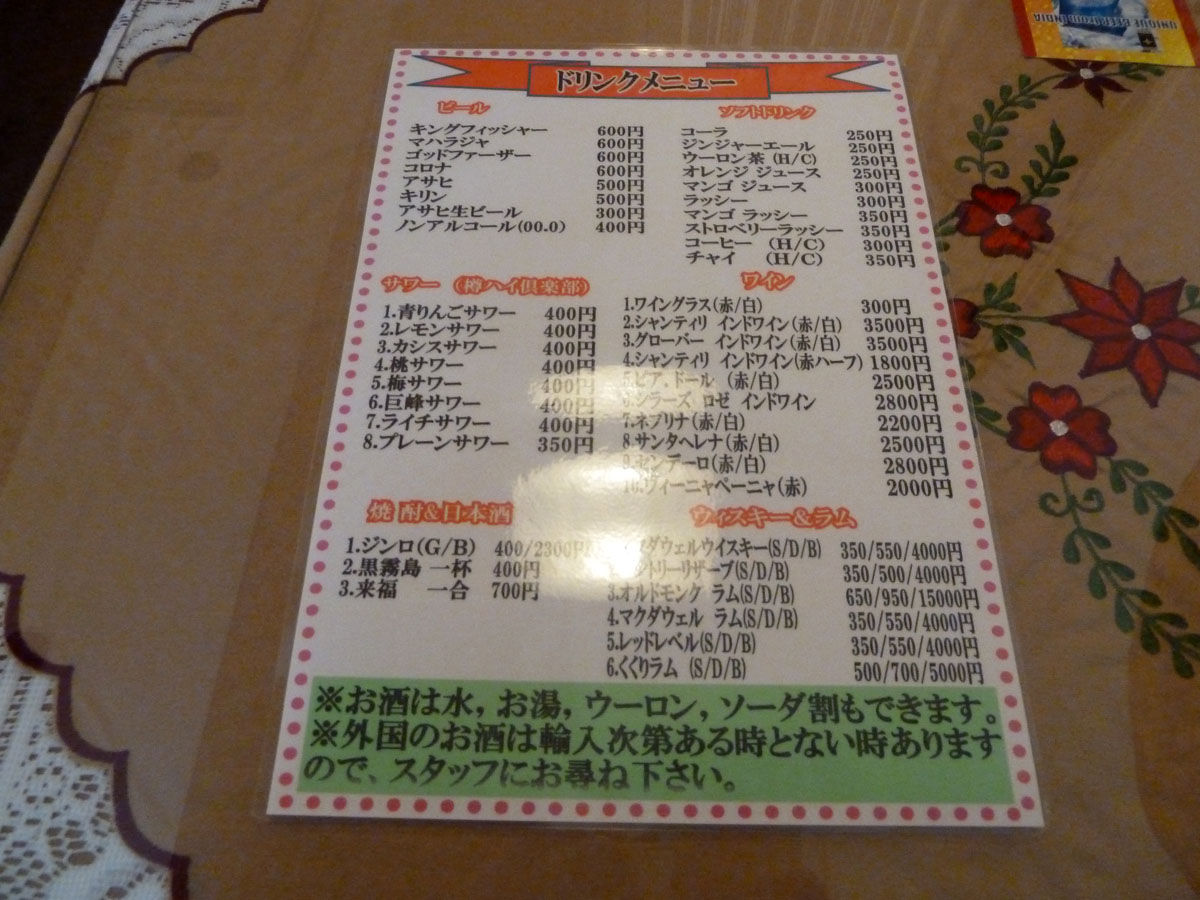 UNIQUE BEER FROM INDIA
ドリンクメニュー
ビール
キングフィッシャー 600円
マハラジャ 600円
ゴッドファーザー 600円
コロナ 600円
アサヒ 500円
キリン 500円
アサヒ生ビール 300円
ノンアルコール(00.0) 400円
ソフトドリンク
コーラ 250円
ジンジャーエール 250円
ウーロン茶 (H/C) 250円
オレンジ ジュース 250円
マンゴ ジュース 300円
ラッシー 300円
マンゴ ラッシー 350円
ストロベリーラッシー 350円
コーヒー (H/C) 300円
チャイ (H/C) 350円
サワー (樽ハイ倶楽部)
1.青りんごサワー 400円
2.レモンサワー 400円
3.カシスサワー 400円
4.桃サワー 400円
5.梅サワー 400円
6.巨峰サワー 400円
7.ライチサワー 400円
8.プレーンサワー 350円
ワイン
1.ワイングラス(赤/白) 300円
2.シャンティリ インドワイン(赤/白) 3500円
3.グローバー インドワイン(赤/白) 3500円
4.シャンティリ インドワイン(赤ハーフ) 1800円
5.ピア.ドール (赤/白) 2500円
6.シラーズ ロゼ インドワイン 2800円
7.ネプリナ(赤/白) 2200円
8.サンタヘレナ(赤/白) 2500円
センデーロ(赤/白) 2800円
10.ヴィーニャペーニャ(赤) 2000円
焼 酎&日本酒
1.ジンロ(G/B) 400/2300円
2.黒霧島 一杯 400円
3.来福 一合 700円
ウィスキー&ラム
ダウェルウイスキー(S/D/B) 350/550/4000円
ントリーリザーブ(S/D/B) 350/500/4000円
3.オルドモンク ラム(S/D/B) 650/950/15000円
4.マクダウェル ラム(S/D/B) 350/550/4000円
5.レッドレベル(S/D/B) 350/550/4000円
6.くくりラム (S/D/B) 500/700/5000円
※お酒は水, お湯, ウーロン, ソーダ割もできます。
※外国のお酒は輸入次第ある時とない時あります
ので、スタッフにお尋ね下さい。